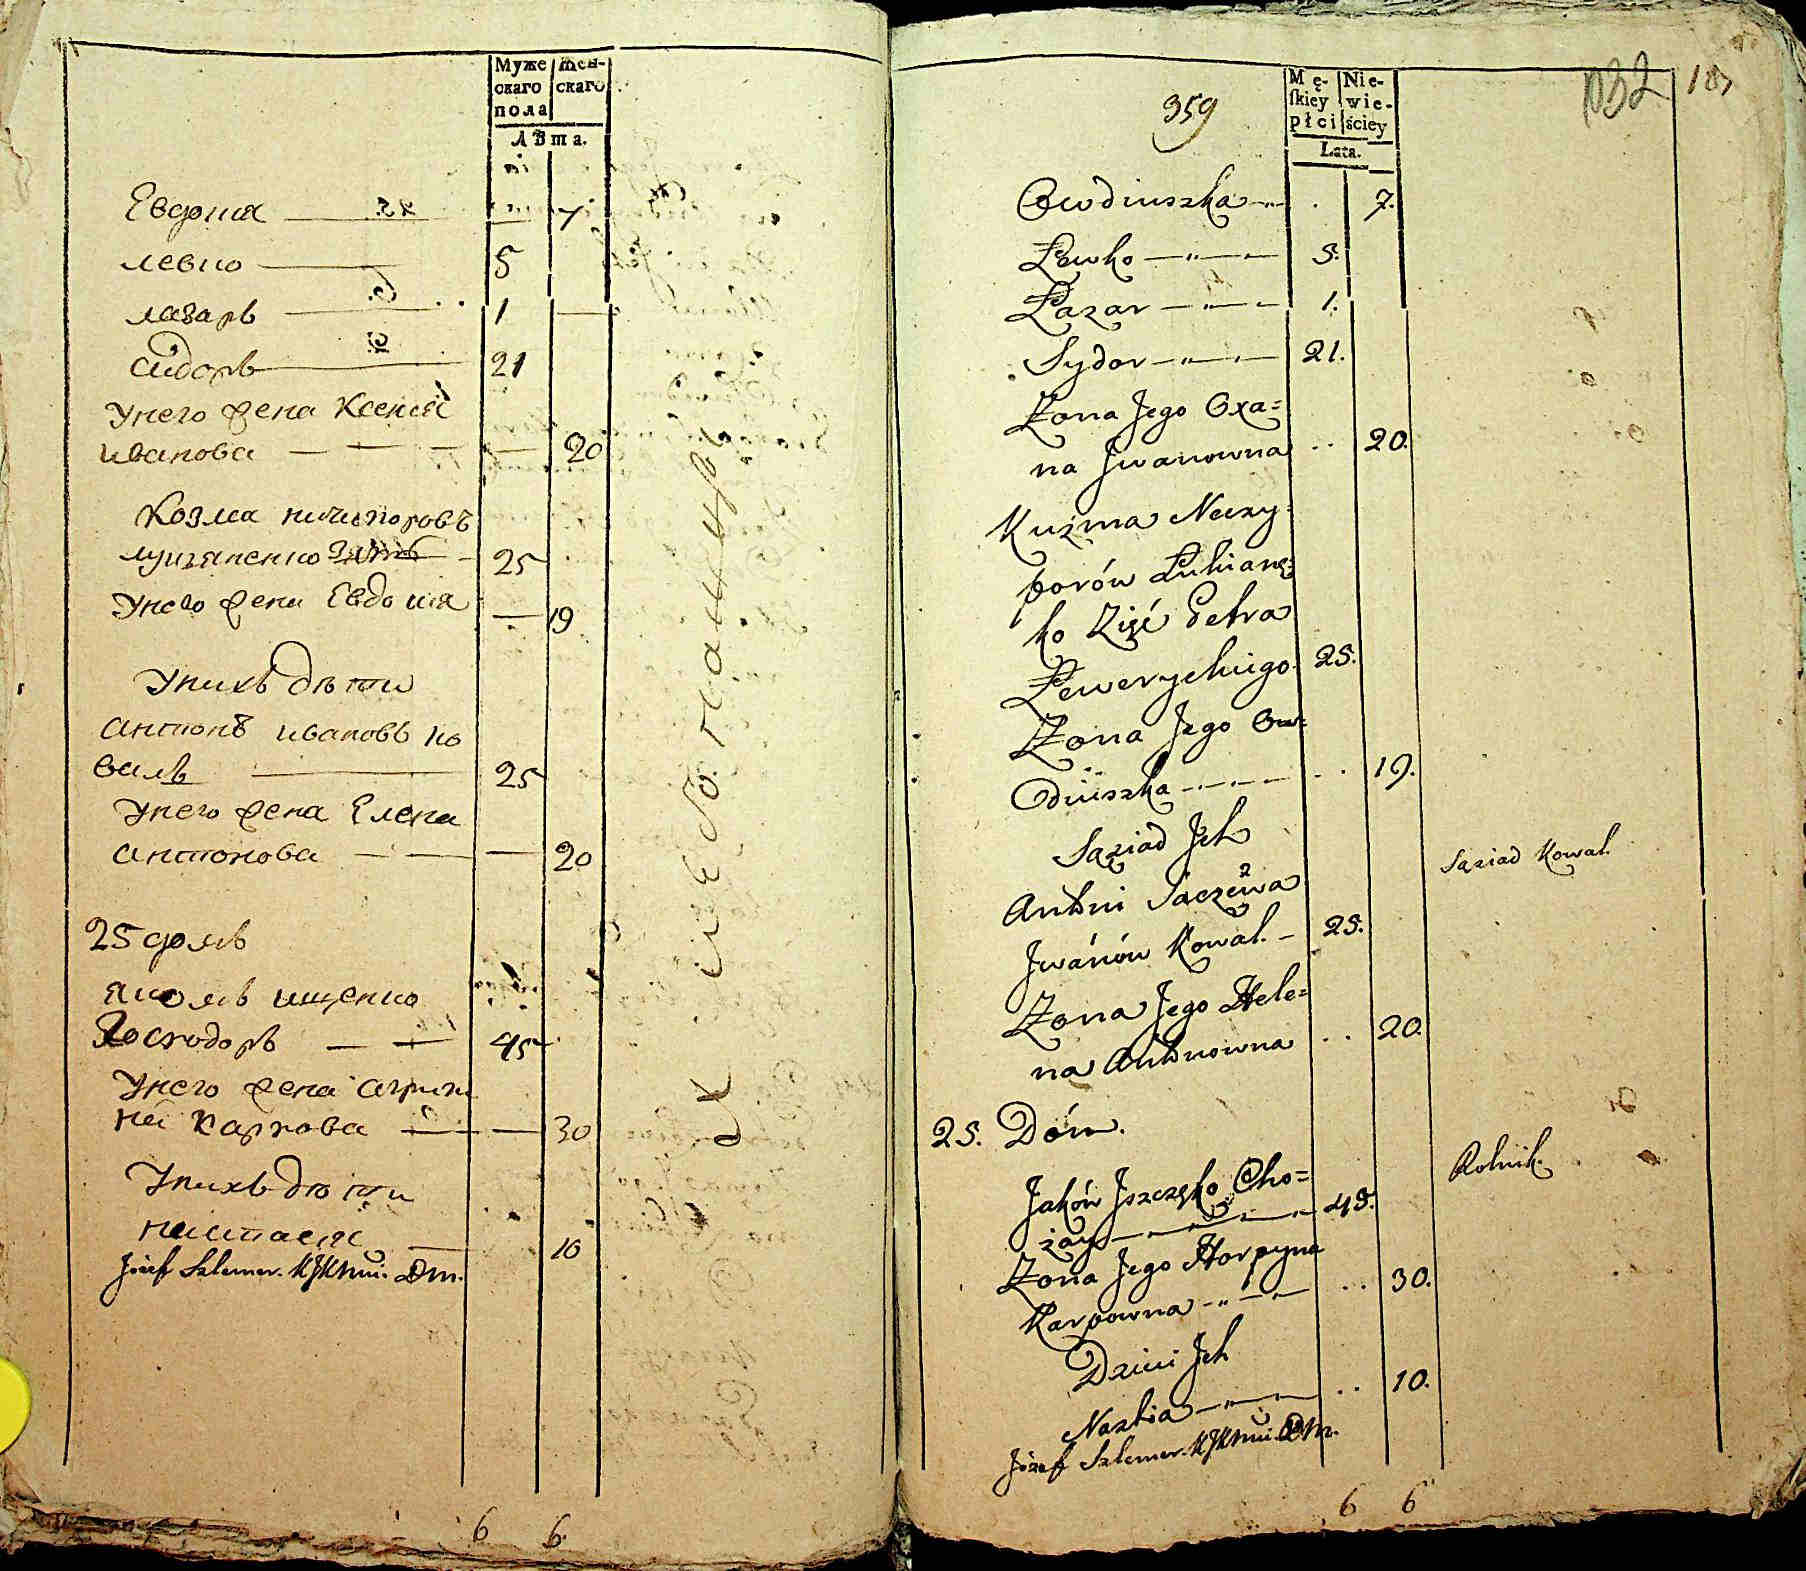 Муже
скаго
пола
Жен-
скаго
Лѣта.
Евдокия — — 7
левко — 5
лазарь — 1 —
сидоръ — 21
унего жена Ксения
иванова — — — — 20
Козма ничипоровъ
лукьяненко зять — 25
унего жена Евдокия — 19
унихъ дѣти
антонъ ивановъ ко
валь — 25
унего жена Елена
антонова — — — 20
25 домъ
яковъ ищенко
господарь — — 45
унего жена агрипи
на карпова — — 30
унихъ дѣти
настасия — 10
Józef Szlemer.
6 6.
359
132
187
Mę-
skiey
płci
Nie-
wie-
ściey
Lata.
Owdiuszka — . 7.
Łewko — „ — 5.
Łazar — „ — 1.
Sydor — „ — 21.
Zona Jego Oxa=
na Jwanowna .. 20.
Kuzma Neczy=
porów Łukianę=
ko Zięć Petra
Łeweryckiego. 25.
Zona Jego Ow=
diuszka — .. 19.
Sąziad Jch
Sąziad Kowal.
Antoni
Jwanów Kowal. — 25.
Zona Jego Hele=
na Antonowna .. 20.
25. Dóm.
Rolnik.
Jaków Jszczęko Cho=
zay — 45.
Zona Jego Horpyna
Karpowna — „ — .. 30.
Dzieci Jch
Nastia — „ — .. 10.
Józef Szlemer.
6 6